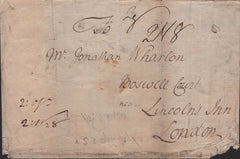 To
2N8
Mr. Jonathan Wharton
Boswell Court
near
Lincoln's Inn
London